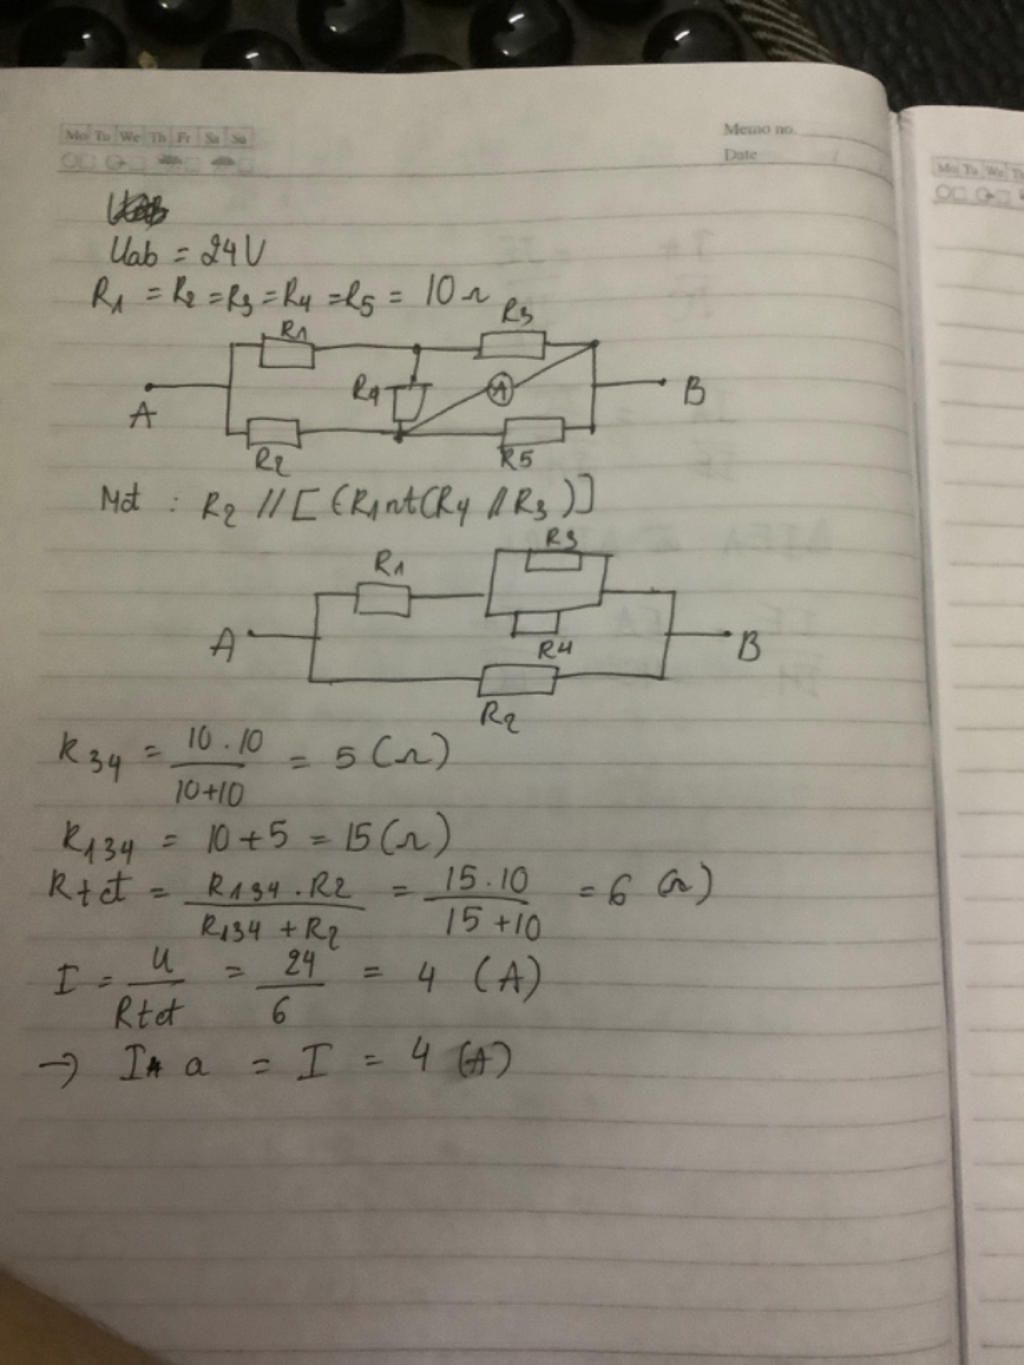 Mo Tu We Th Fr Sa Su
Memo no.
Date
Uab = 24V
R1 = R2 = R3 = R4 = R5 = 10Ω
R1
R3
R4
A
A
B
R2
R5
Mđ : R2 // [(R1nt(R4 // R3)]
R3
R1
A
R4
B
R2
R34 = 10 . 10 / 10+10 = 5 (Ω)
R134 = 10 + 5 = 15 (Ω)
Rtđ = R134 . R2 / R134 + R2 = 15 . 10 / 15 + 10 = 6 (Ω)
I = U / Rtđ = 24 / 6 = 4 (A)
→ I a = I = 4 (A)
Mo Tu We Th